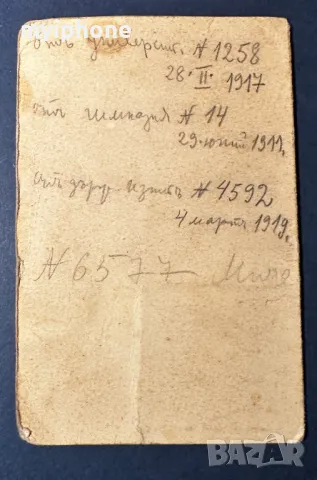 myiphone
отъ университ. N 1258
28·II·1917
отъ гимназия N 14
29·юний 1911.
отъ държ. изпитъ N 4592
4 мартъ 1919.
N 6577
BAZAR
bg